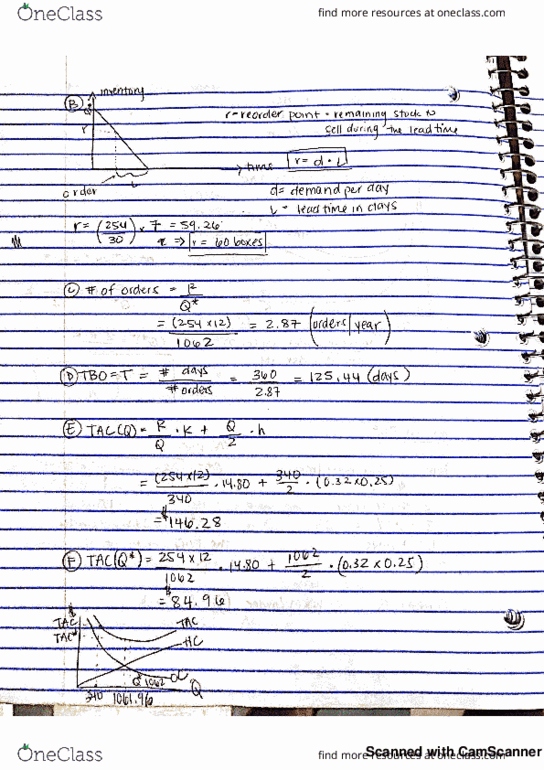 OneClass
find more resources at oneclass.com
B inventory
Q*
r
r = reorder point = remaining stock to
sell during the lead time
time
r = d · L
order
L
d = demand per day
L = lead time in days
r = (254/30) × 7 = 59.26
≈ ⇒ r = 60 boxes
C # of orders = R/Q*
= (254×12)/1062 = 2.87 (orders/year)
D TBO = T = # days/# orders = 360/2.87 = 125.44 (days)
E TAC(Q) = R/Q · K + Q/2 · h
= (254×12)/340 · 14.80 + 340/2 · (0.32×0.25)
= $146.28
F TAC(Q*) = 254×12/1062 · 14.80 + 1062/2 · (0.32×0.25)
= $84.96
$
TAC
TAC*
TAC
HC
OC
Q
340 1061.96
Scanned with CamScanner
OneClass
find more resources at oneclass.com